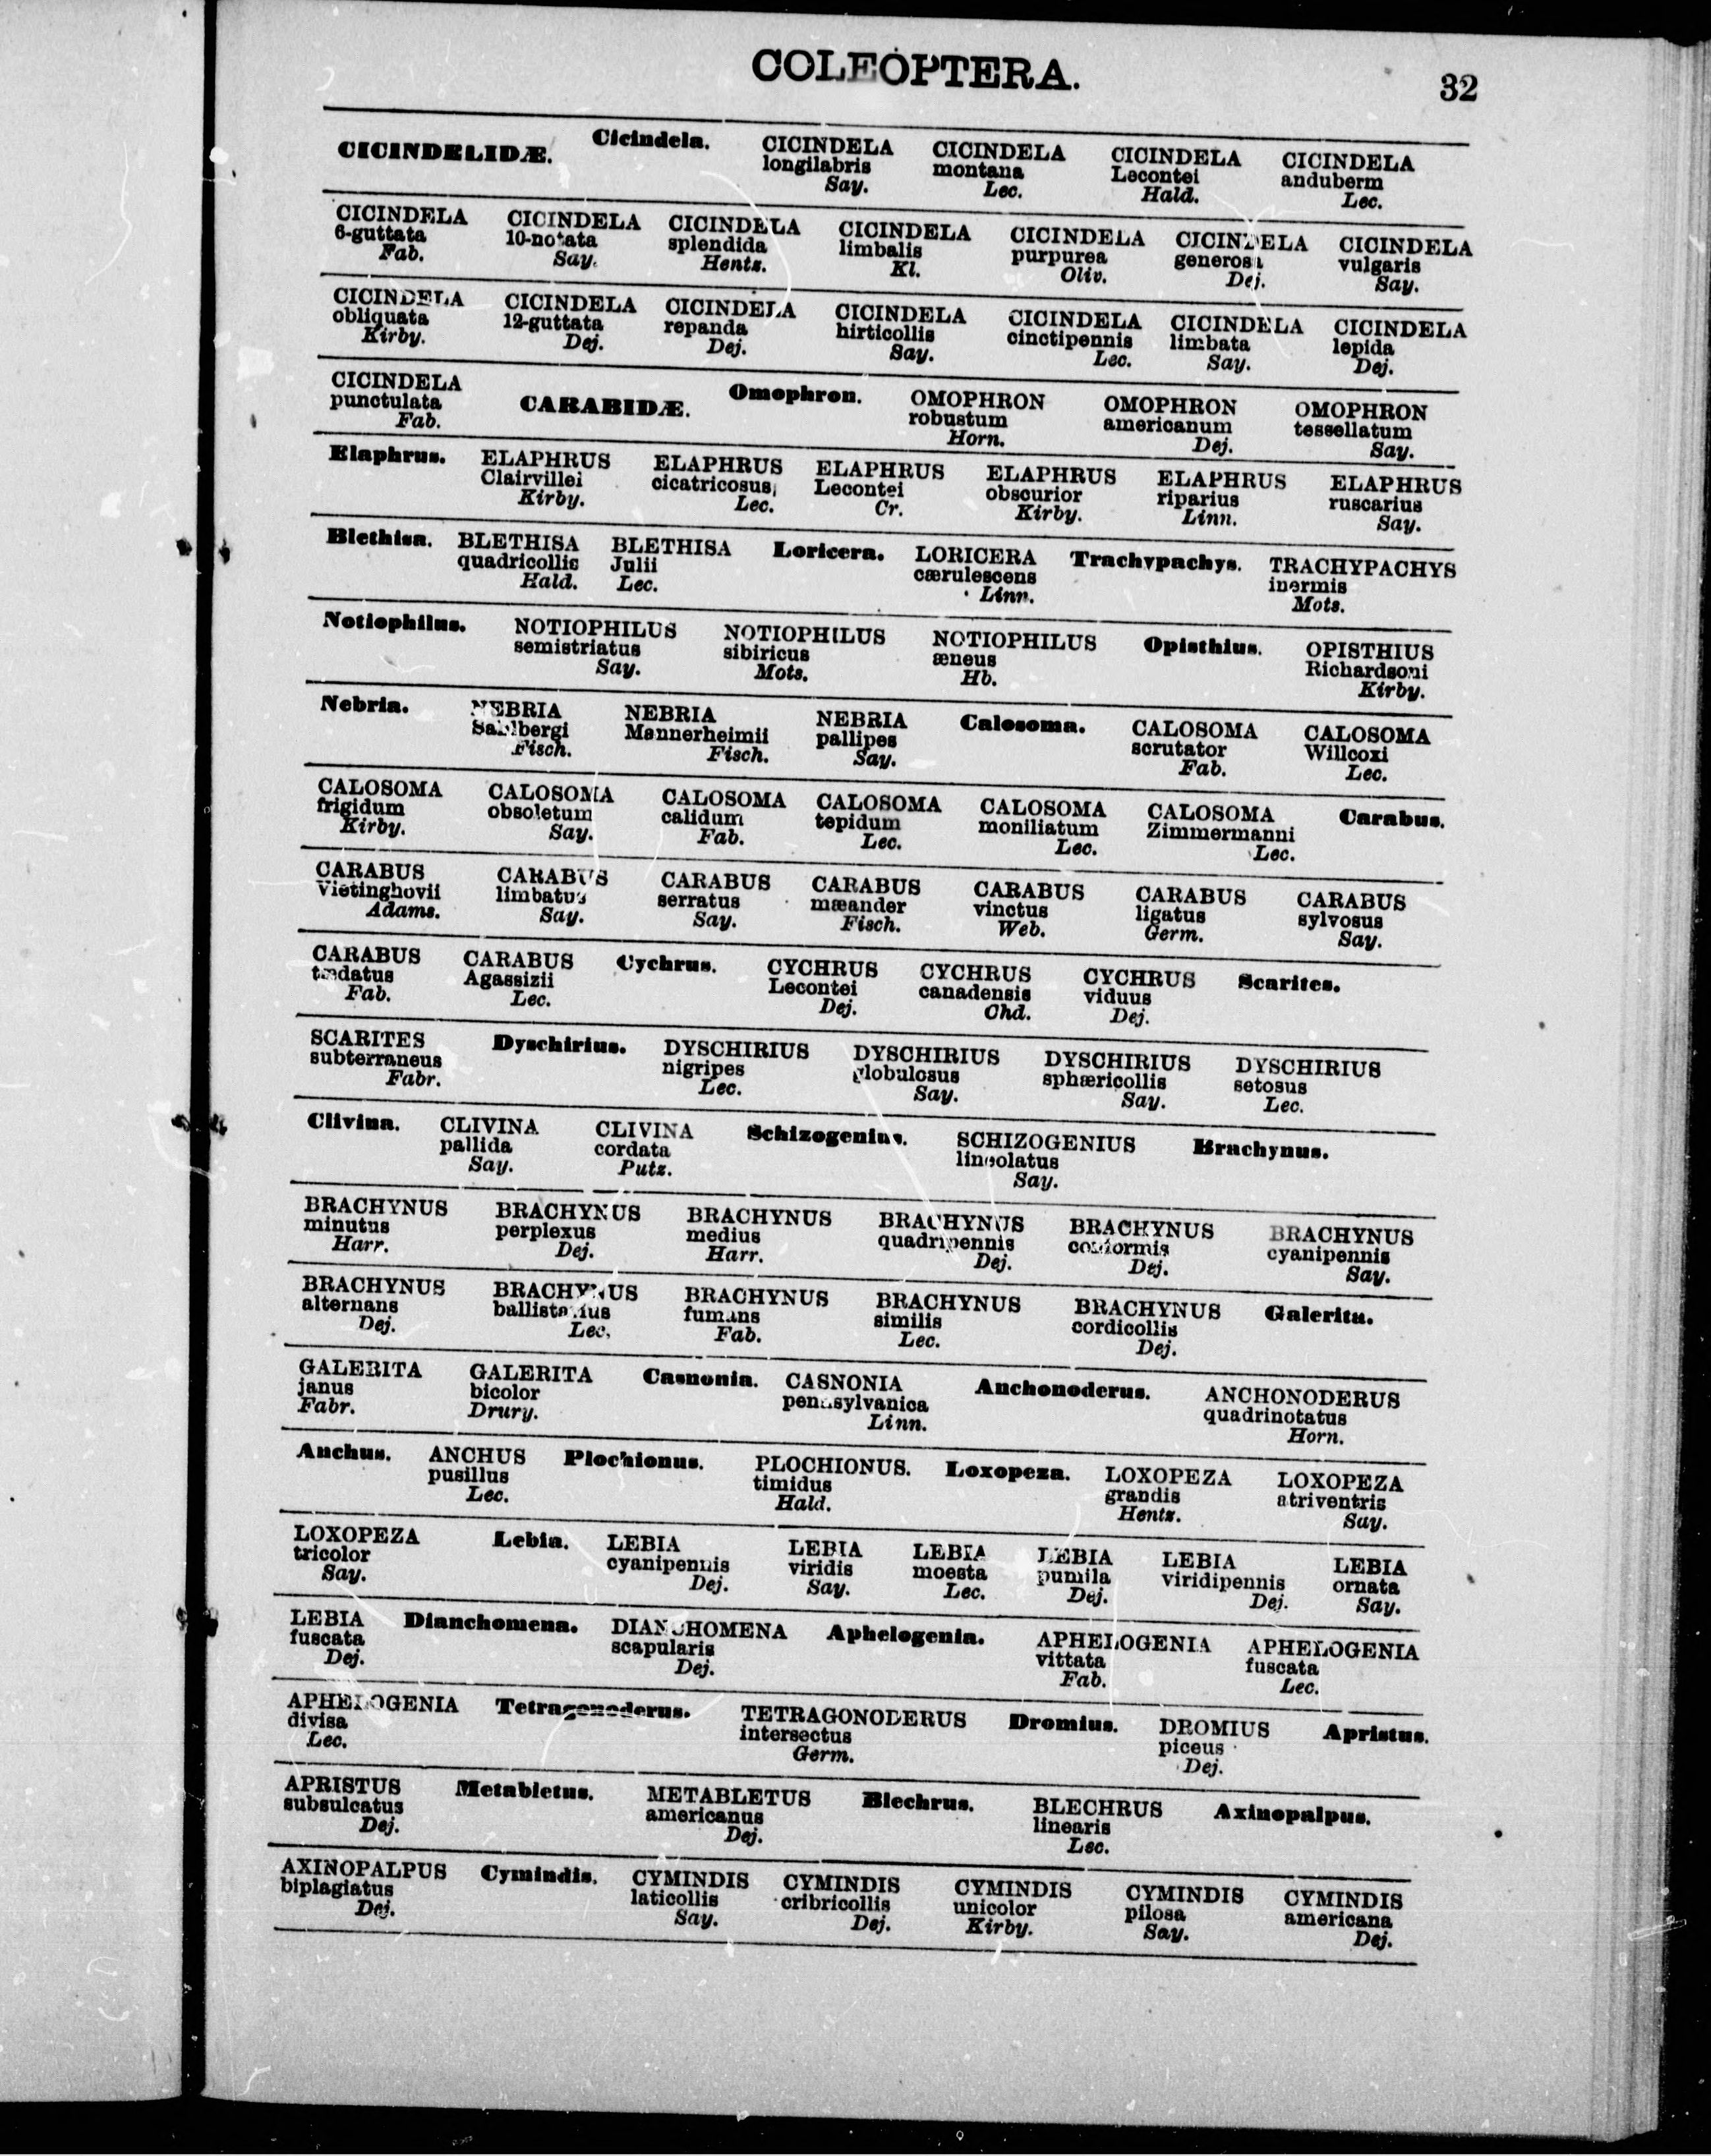 COLEOPTERA.
32
CICINDELIDÆ. Cicindela. CICINDELA CICINDELA CICINDELA CICINDELA
longilabris montana Lecontei anduberm
Say. Lec. Hald. Lec.
CICINDELA CICINDELA CICINDELA CICINDELA CICINDELA CICINDELA CICINDELA
6-guttata 10-notata splendida limbalis purpurea generosa vulgaris
Fab. Say. Hentz. Kl. Oliv. Dej. Say.
CICINDELA CICINDELA CICINDELA CICINDELA CICINDELA CICINDELA CICINDELA
obliquata 12-guttata repanda hirticollis cinctipennis limbata lepida
Kirby. Dej. Dej. Say. Lec. Say. Dej.
CICINDELA CARABIDÆ. Omophron. OMOPHRON OMOPHRON OMOPHRON
punctulata robustum americanum tessellatum
Fab. Horn. Dej. Say.
Elaphrus. ELAPHRUS ELAPHRUS ELAPHRUS ELAPHRUS ELAPHRUS ELAPHRUS
Clairvillei cicatricosus Lecontei obscurior riparius ruscarius
Kirby. Lec. Cr. Kirby. Linn. Say.
Blethisa. BLETHISA BLETHISA Loricera. LORICERA Trachypachys. TRACHYPACHYS
quadricollis Julii cærulescens inermis
Hald. Lec. Linn. Mots.
Notiophilus. NOTIOPHILUS NOTIOPHILUS NOTIOPHILUS Opisthius. OPISTHIUS
semistriatus sibiricus æneus Richardsoni
Say. Mots. Hb. Kirby.
Nebria. NEBRIA NEBRIA NEBRIA Calosoma. CALOSOMA CALOSOMA
Sahlbergi Mannerheimii pallipes scrutator Willcoxi
Fisch. Fisch. Say. Fab. Lec.
CALOSOMA CALOSOMA CALOSOMA CALOSOMA CALOSOMA CALOSOMA Carabus.
frigidum obsoletum calidum tepidum moniliatum Zimmermanni
Kirby. Say. Fab. Lec. Lec. Lec.
CARABUS CARABUS CARABUS CARABUS CARABUS CARABUS CARABUS
Vietinghovii limbatus serratus mæander vinctus ligatus sylvosus
Adams. Say. Say. Fisch. Web. Germ. Say.
CARABUS CARABUS Cychrus. CYCHRUS CYCHRUS CYCHRUS Scarites.
tædatus Agassizii Lecontei canadensis viduus
Fab. Lec. Dej. Chd. Dej.
SCARITES Dyschirius. DYSCHIRIUS DYSCHIRIUS DYSCHIRIUS DYSCHIRIUS
subterraneus nigripes globulosus sphæricollis setosus
Fabr. Lec. Say. Say. Lec.
Clivina. CLIVINA CLIVINA Schizogenius. SCHIZOGENIUS Brachynus.
pallida cordata lineolatus
Say. Putz. Say.
BRACHYNUS BRACHYNUS BRACHYNUS BRACHYNUS BRACHYNUS BRACHYNUS
minutus perplexus medius quadripennis conformis cyanipennis
Harr. Dej. Harr. Dej. Dej. Say.
BRACHYNUS BRACHYNUS BRACHYNUS BRACHYNUS BRACHYNUS Galerita.
alternans ballistarius fumans similis cordicollis
Dej. Lec. Fab. Lec. Dej.
GALERITA GALERITA Casnonia. CASNONIA Anchonoderus. ANCHONODERUS
janus bicolor pennsylvanica quadrinotatus
Fabr. Drury. Linn. Horn.
Anchus. ANCHUS Plochionus. PLOCHIONUS. Loxopeza. LOXOPEZA LOXOPEZA
pusillus timidus grandis atriventris
Lec. Hald. Hentz. Say.
LOXOPEZA Lebia. LEBIA LEBIA LEBIA LEBIA LEBIA LEBIA
tricolor cyanipennis viridis moesta pumila viridipennis ornata
Say. Dej. Say. Lec. Dej. Dej. Say.
LEBIA Dianchomena. DIANCHOMENA Aphelogenia. APHELOGENIA APHELOGENIA
fuscata scapularis vittata fuscata
Dej. Dej. Fab. Lec.
APHELOGENIA Tetragonoderus. TETRAGONODERUS Dromius. DROMIUS Apristus.
divisa intersectus piceus
Lec. Germ. Dej.
APRISTUS Metabletus. METABLETUS Blechrus. BLECHRUS Axinopalpus.
subsulcatus americanus linearis
Dej. Dej. Lec.
AXINOPALPUS Cymindis. CYMINDIS CYMINDIS CYMINDIS CYMINDIS CYMINDIS
biplagiatus laticollis cribricollis unicolor pilosa americana
Dej. Say. Dej. Kirby. Say. Dej.